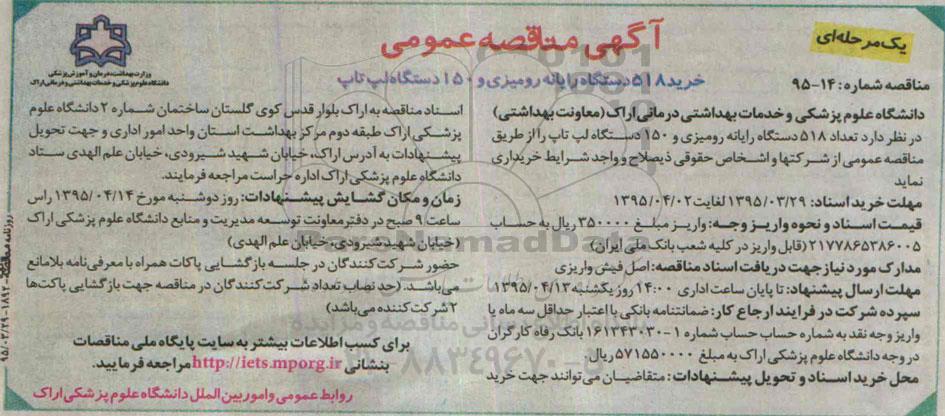 یک مرحله‌ای
آگهی مناقصه عمومی
وزارت بهداشت، درمان و آموزش پزشکی
دانشگاه علوم پزشکی و خدمات بهداشتی و درمانی اراک
خرید ۵۱۸ دستگاه رایانه رومیزی و ۱۵۰ دستگاه لپ تاپ
مناقصه شماره: ۱۴-۹۵
دانشگاه علوم پزشکی و خدمات بهداشتی درمانی اراک (معاونت بهداشتی)
در نظر دارد تعداد ۵۱۸ دستگاه رایانه رومیزی و ۱۵۰ دستگاه لپ تاپ را از طریق
مناقصه عمومی از شرکتها و اشخاص حقوقی ذیصلاح و واجد شرایط خریداری
نماید
مهلت خرید اسناد: ۱۳۹۵/۰۳/۲۹ لغایت ۱۳۹۵/۰۴/۰۲
قیمت اسناد و نحوه واریز وجه: واریز مبلغ ۳۵۰۰۰۰ ریال به حساب
۲۱۷۷۸۶۵۳۸۶۰۰۵ (قابل واریز در کلیه شعب بانک ملی ایران)
مدارک مورد نیاز جهت دریافت اسناد مناقصه: اصل فیش واریزی
مهلت ارسال پیشنهاد: تا پایان ساعت اداری ۱۴:۰۰ روز یکشنبه ۱۳۹۵/۰۴/۱۳
سپرده شرکت در فرایند ارجاع کار: ضمانتنامه بانکی با اعتبار حداقل سه ماه یا
واریز وجه نقد به شماره حساب حساب شماره ۱-۱۶۱۳۴۳۰۳۰ بانک رفاه کارگران
در وجه دانشگاه علوم پزشکی اراک به مبلغ ۵۷۱۵۵۰۰۰۰ ریال.
محل خرید اسناد و تحویل پیشنهادات: متقاضیان می‌توانند جهت خرید
اسناد مناقصه به اراک بلوار قدس کوی گلستان ساختمان شماره ۲ دانشگاه علوم
پزشکی اراک طبقه دوم مرکز بهداشت استان واحد امور اداری و جهت تحویل
پیشنهادات به آدرس اراک، خیابان شهید شیرودی، خیابان علم الهدی ستاد
دانشگاه علوم پزشکی اراک اداره حراست مراجعه فرمایند.
زمان و مکان گشایش پیشنهادات: روز دوشنبه مورخ ۱۳۹۵/۰۴/۱۴ راس
ساعت ۹ صبح در دفتر معاونت توسعه مدیریت و منابع دانشگاه علوم پزشکی اراک
(خیابان شهید شیرودی، خیابان علم الهدی)
حضور شرکت کنندگان در جلسه بازگشایی پاکات همراه با معرفی‌نامه بلامانع
می‌باشد. (حد نصاب تعداد شرکت کنندگان در مناقصه جهت بازگشایی پاکت‌ها
۲ شرکت کننده می‌باشد)
برای کسب اطلاعات بیشتر به سایت پایگاه ملی مناقصات
بنشانی http://iets.mporg.ir مراجعه فرمایید.
روابط عمومی و امور بین الملل دانشگاه علوم پزشکی اراک
ParsNamadData
۸۸۳۴۹۶۷۰